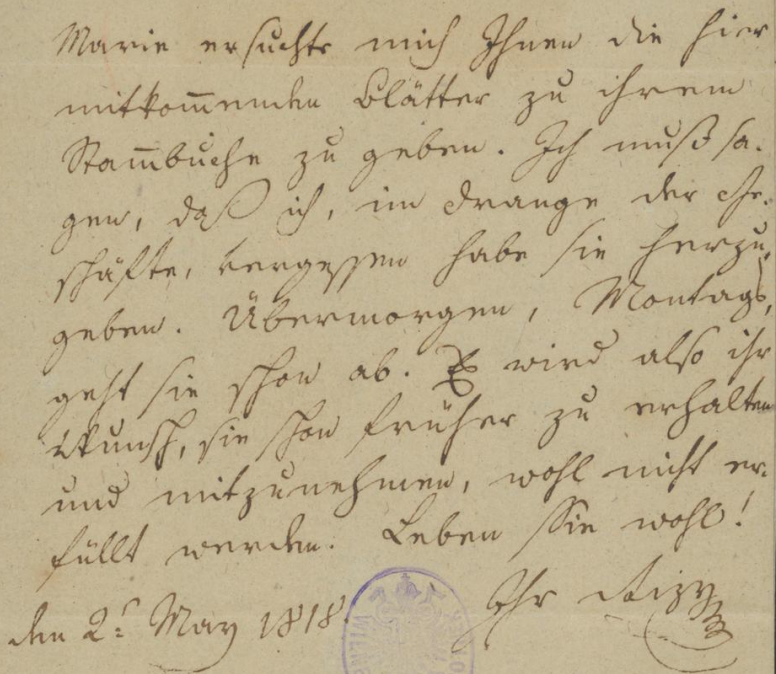 Marie ersuchte mich Ihnen die hier
mitkom̅enden Blätter zu ihrem
Stam̅buche zu geben. Ich muß sa-
gen, daß ich, im Drange der Ge-
schäfte, vergessen habe sie herzu-
geben. Übermorgen, Montags,
geht sie schon ab. Es wird also ihr
Wunsch, sie schon früher zu erhalten
und mitzunehmen, wohl nicht er-
füllt werden. Leben Sie wohl!
Ihr Rizy
den 2t May 1818.